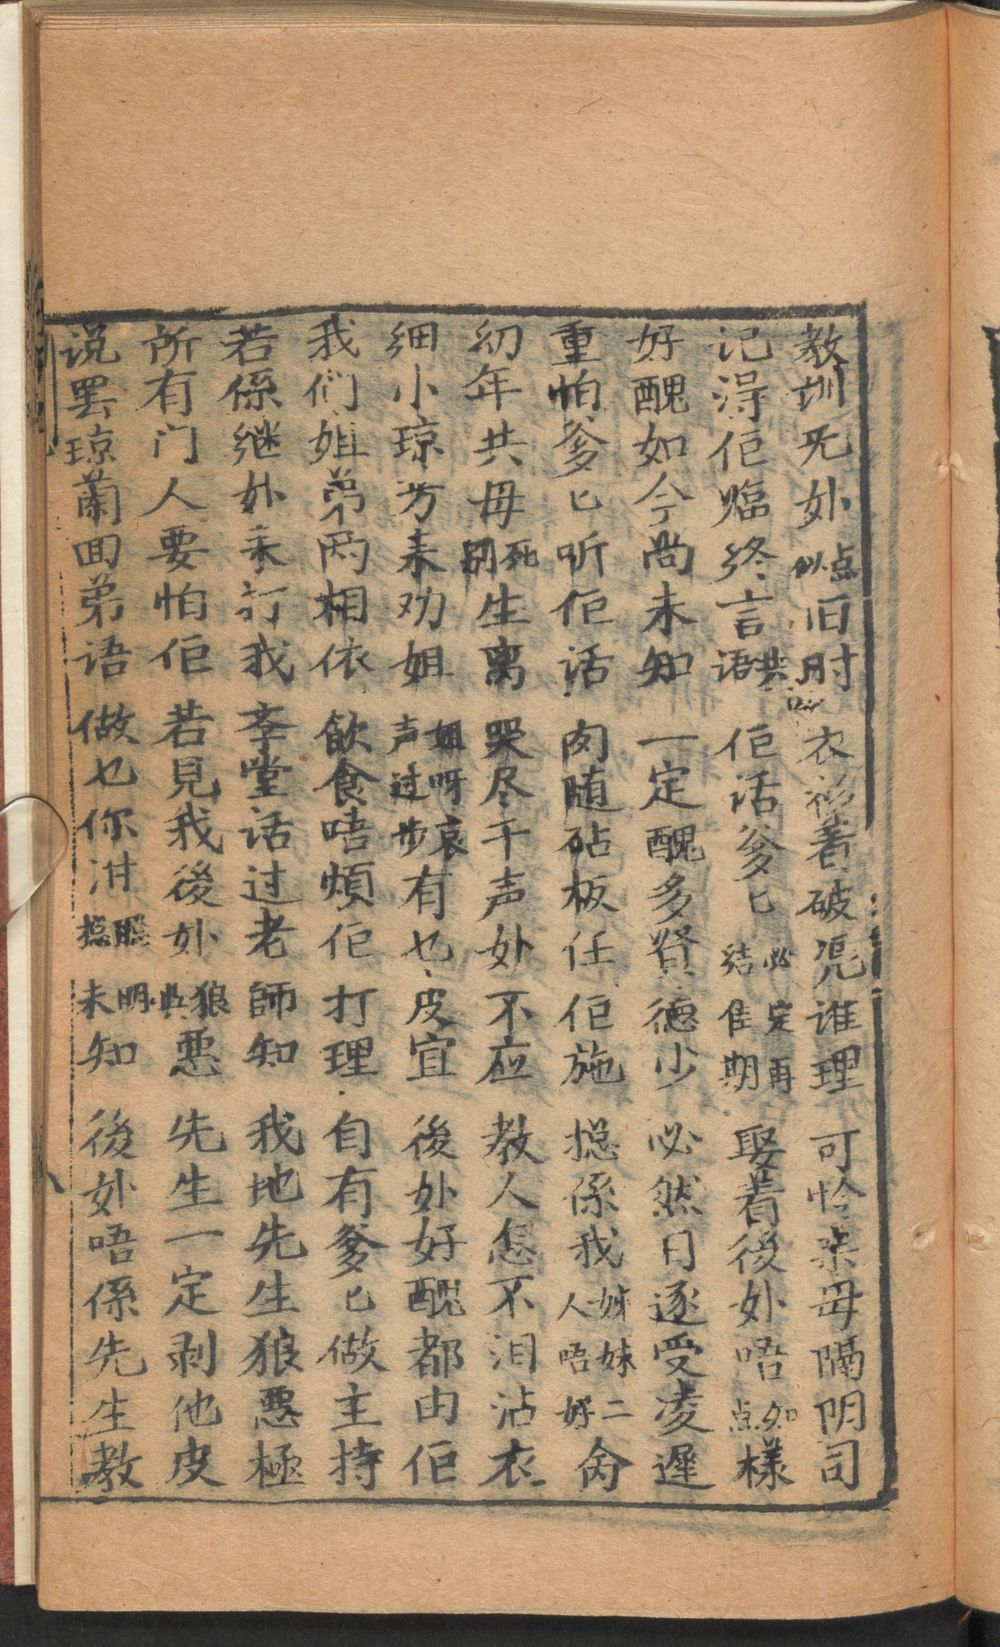 教训死乸点似旧时衣衫着破凭谁理可怜亲母隔阴司
记淂佢临终言共语佢话爹匕必定再结佳期娶着後乸唔知点樣
好醜如今尚未知一定醜多賢德少必然日逐受凌遲
重怕爹匕听佢话肉随砧板任佢施捴係我姊妹二人唔好命
幼年共母死别生离哭尽千声乸不应教人怎不泪沾衣
细小琼芳来劝姐姐呀哀声过步有乜皮宜後乸好醜都由佢
我们姐弟两相依飲食唔煩佢打理自有爹匕做主持
若係继乸来打我李堂话过老師知我地先生狼惡極
所有门人要怕佢若見我後乸狼與惡先生一定剥他皮
说罢琼蘭回弟语做乜你泔聪捴明未知後乸唔係先生教